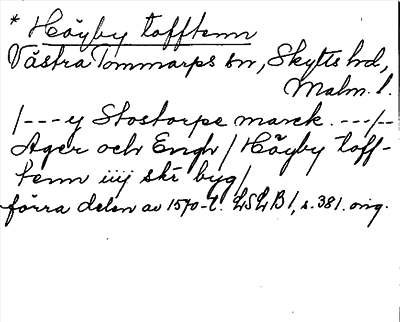 * Höyby tofftenn
Västra Tommarps sn, Skytts hd,
Malm. l.
/---y Stostorpe marck. ---/-
Ager och Engh / Höyby toff-
tenn iiij ske byg/
förra delen av 1570-t. LSLB1, s. 381. orig.